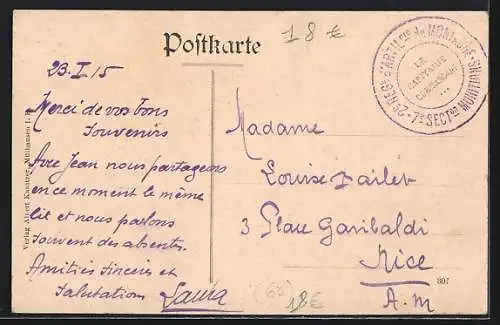 18 €
Postkarte
2e REGt D'ARTILLie de MONTAGNE
7e SECTon MUNITIONS
LE
CAPITAINE
COMMANDANT
23. I 15
Merci de vos bons
souvenirs
Avec Jean nous partageons
en ce moment le même
lit et nous parlons
souvent des absents.
Amitiés sincères et
salutations
Madame
Louise
3 Place Garibaldi
Nice
A. M
Verlag Albert Mülhausen i. E.
807
(68)
18€